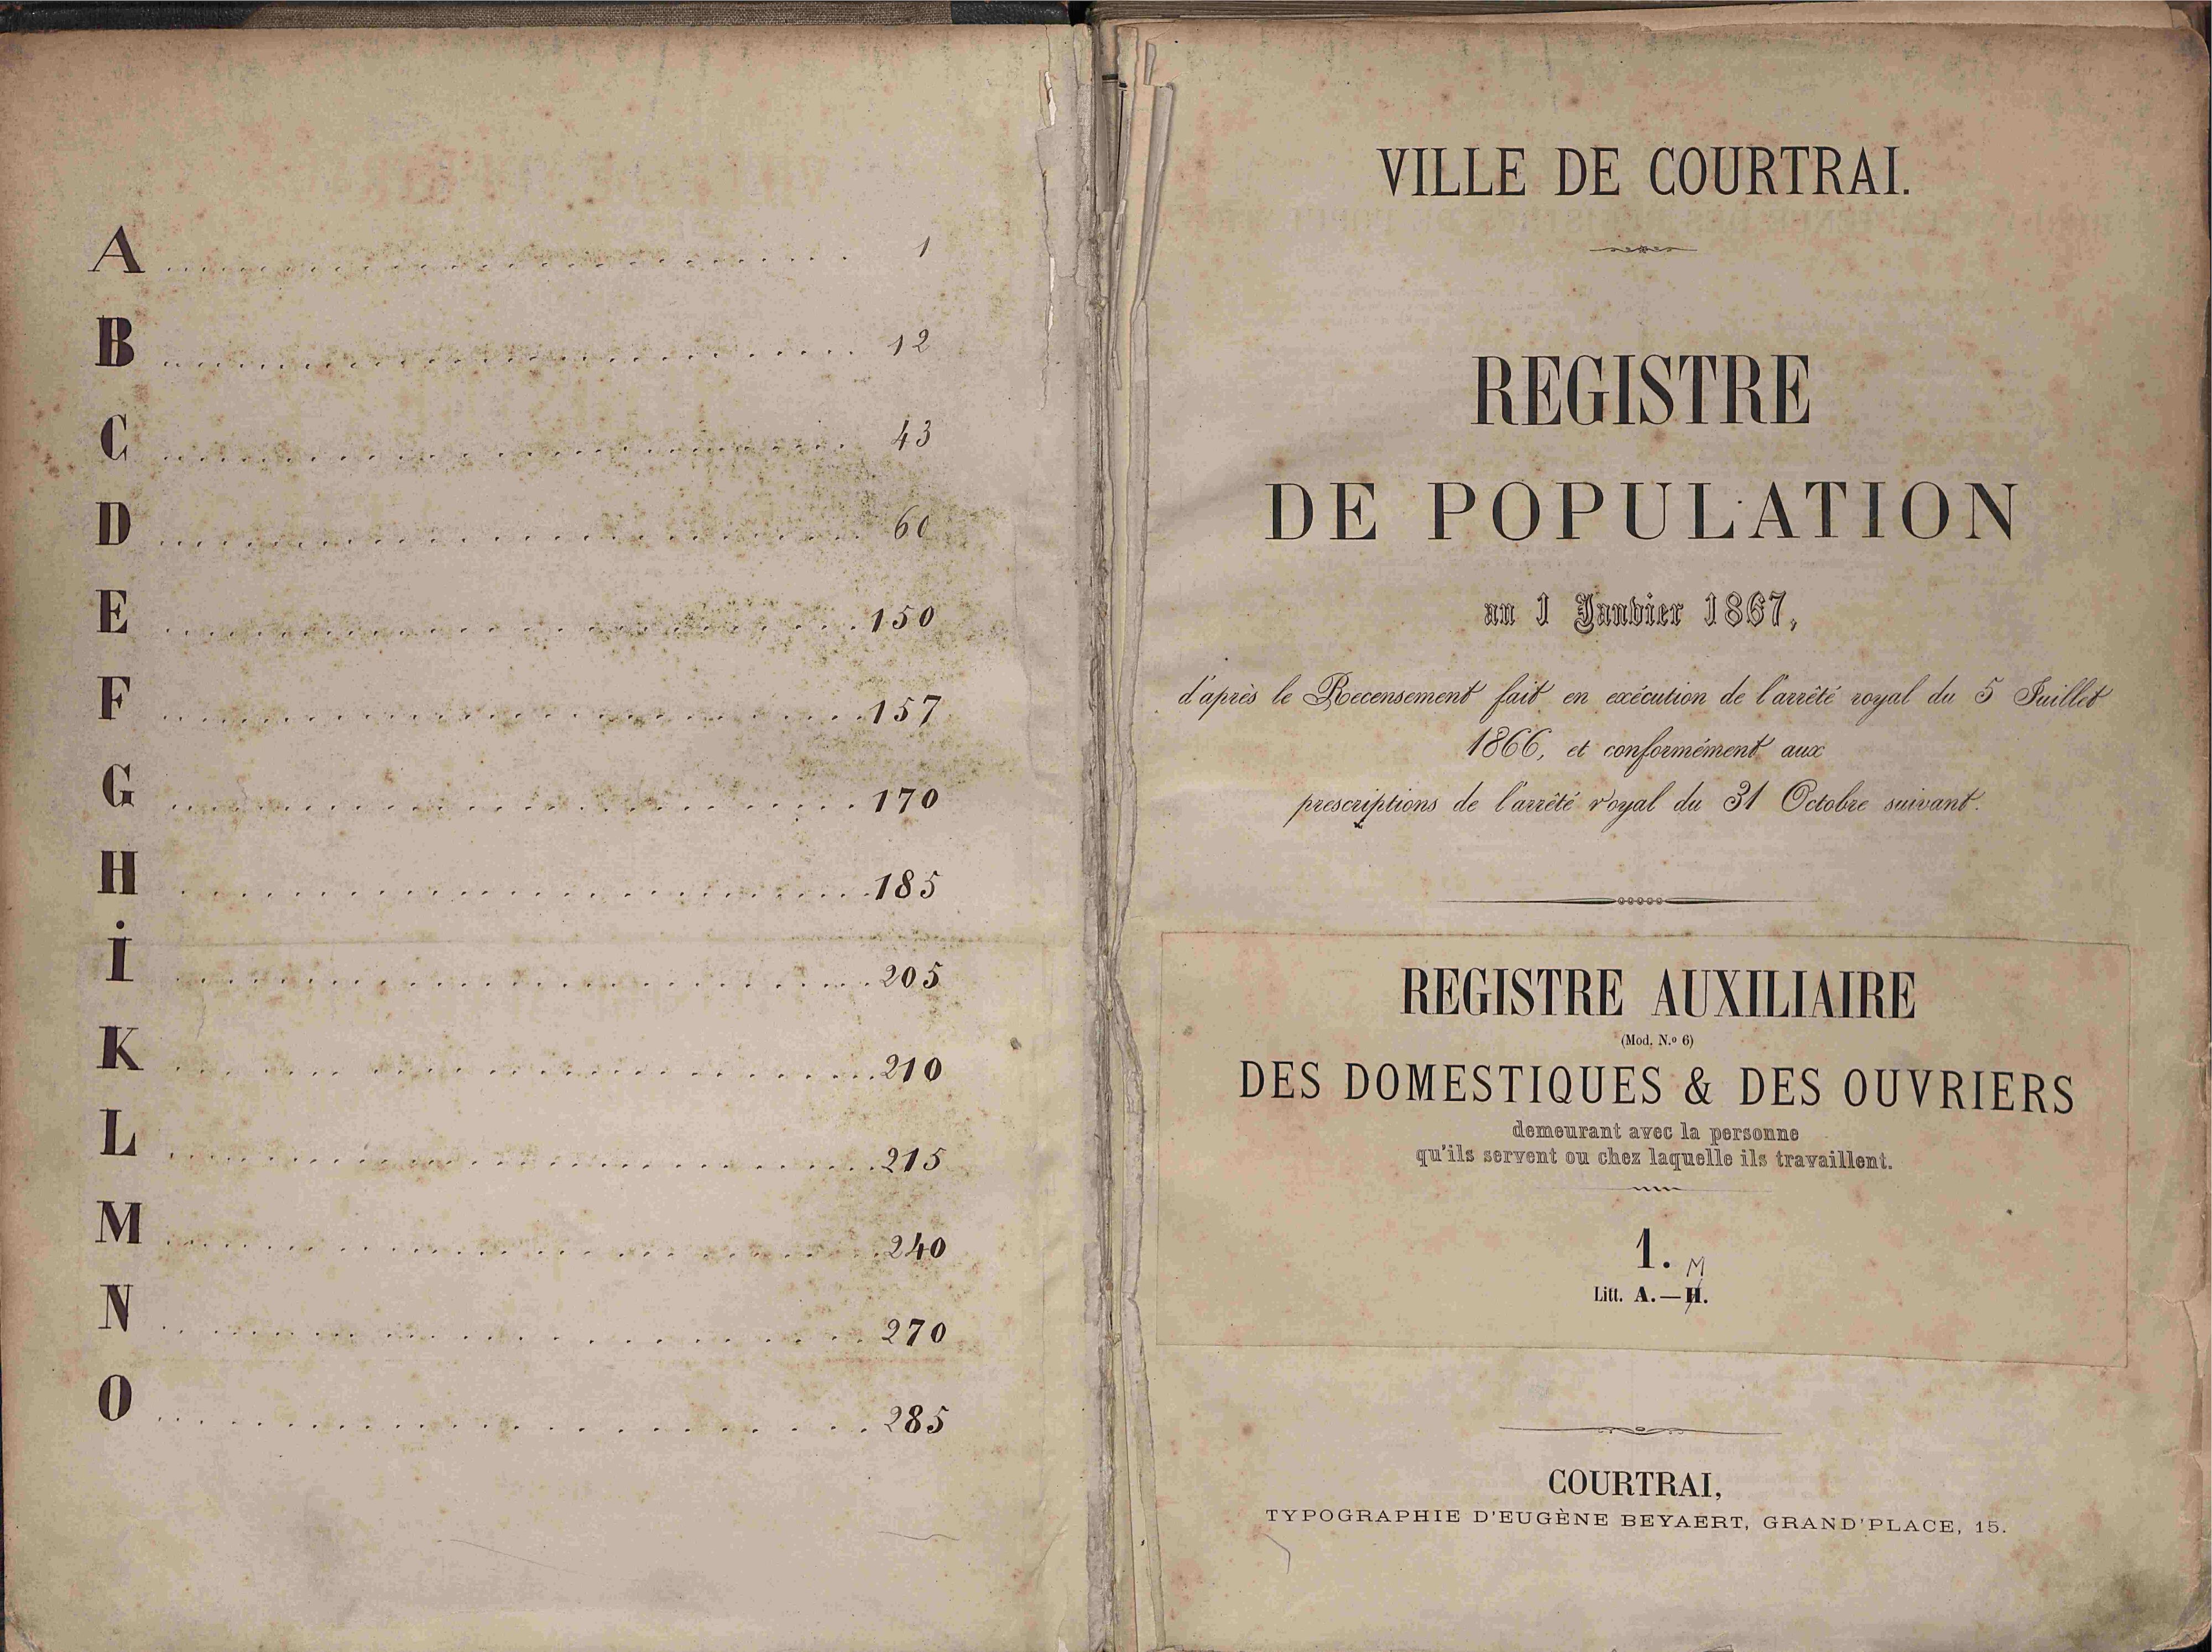 A 1
B 12
C 43
D 60
E 150
F 157
G 170
H 185
I 205
K 210
L 215
M 240
N 270
O 285
VILLE DE COURTRAI.
REGISTRE
DE POPULATION
au 1 Janvier 1867,
d'après le Recensement fait en exécution de l'arrêté royal du 5 Juillet
1866, et conformément aux
prescriptions de l'arrêté royal du 31 Octobre suivant.
REGISTRE AUXILIAIRE
(Mod. N.º 6)
DES DOMESTIQUES & DES OUVRIERS
demeurant avec la personne
qu'ils servent ou chez laquelle ils travaillent.
1.
M
Litt. A.—H.
COURTRAI,
TYPOGRAPHIE D'EUGÈNE BEYAERT, GRAND'PLACE, 15.